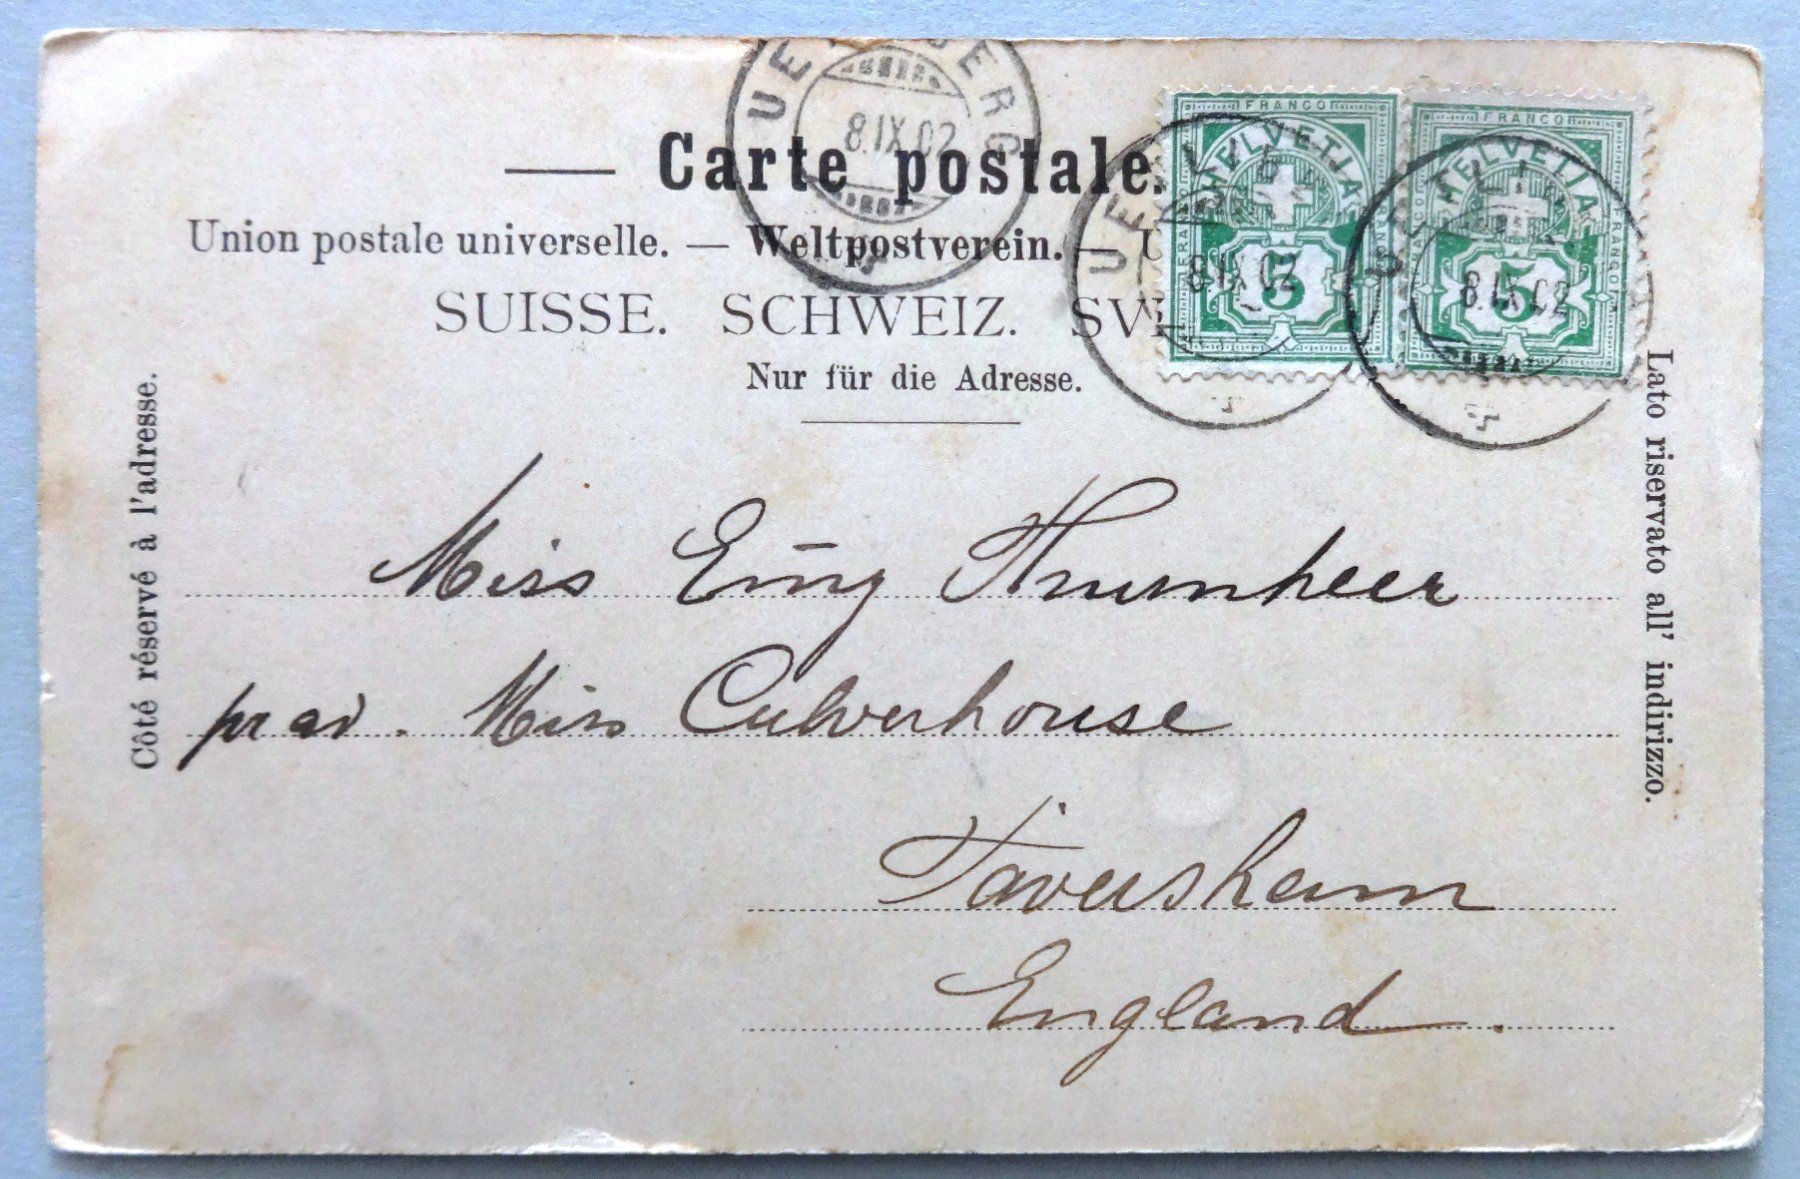 Carte postale.
Union postale universelle. — Weltpostverein. — U
SUISSE. SCHWEIZ. SV
Nur für die Adresse.
Côté réservé à l'adresse.
Lato riservato all' indirizzo.
8.IX.02
FRANCO
HELVETIA
8.IX.02
5
FRANCO
HELVETIA
8.IX.02
5
Miss Emy
Miss Culverhouse
Faversham
England.